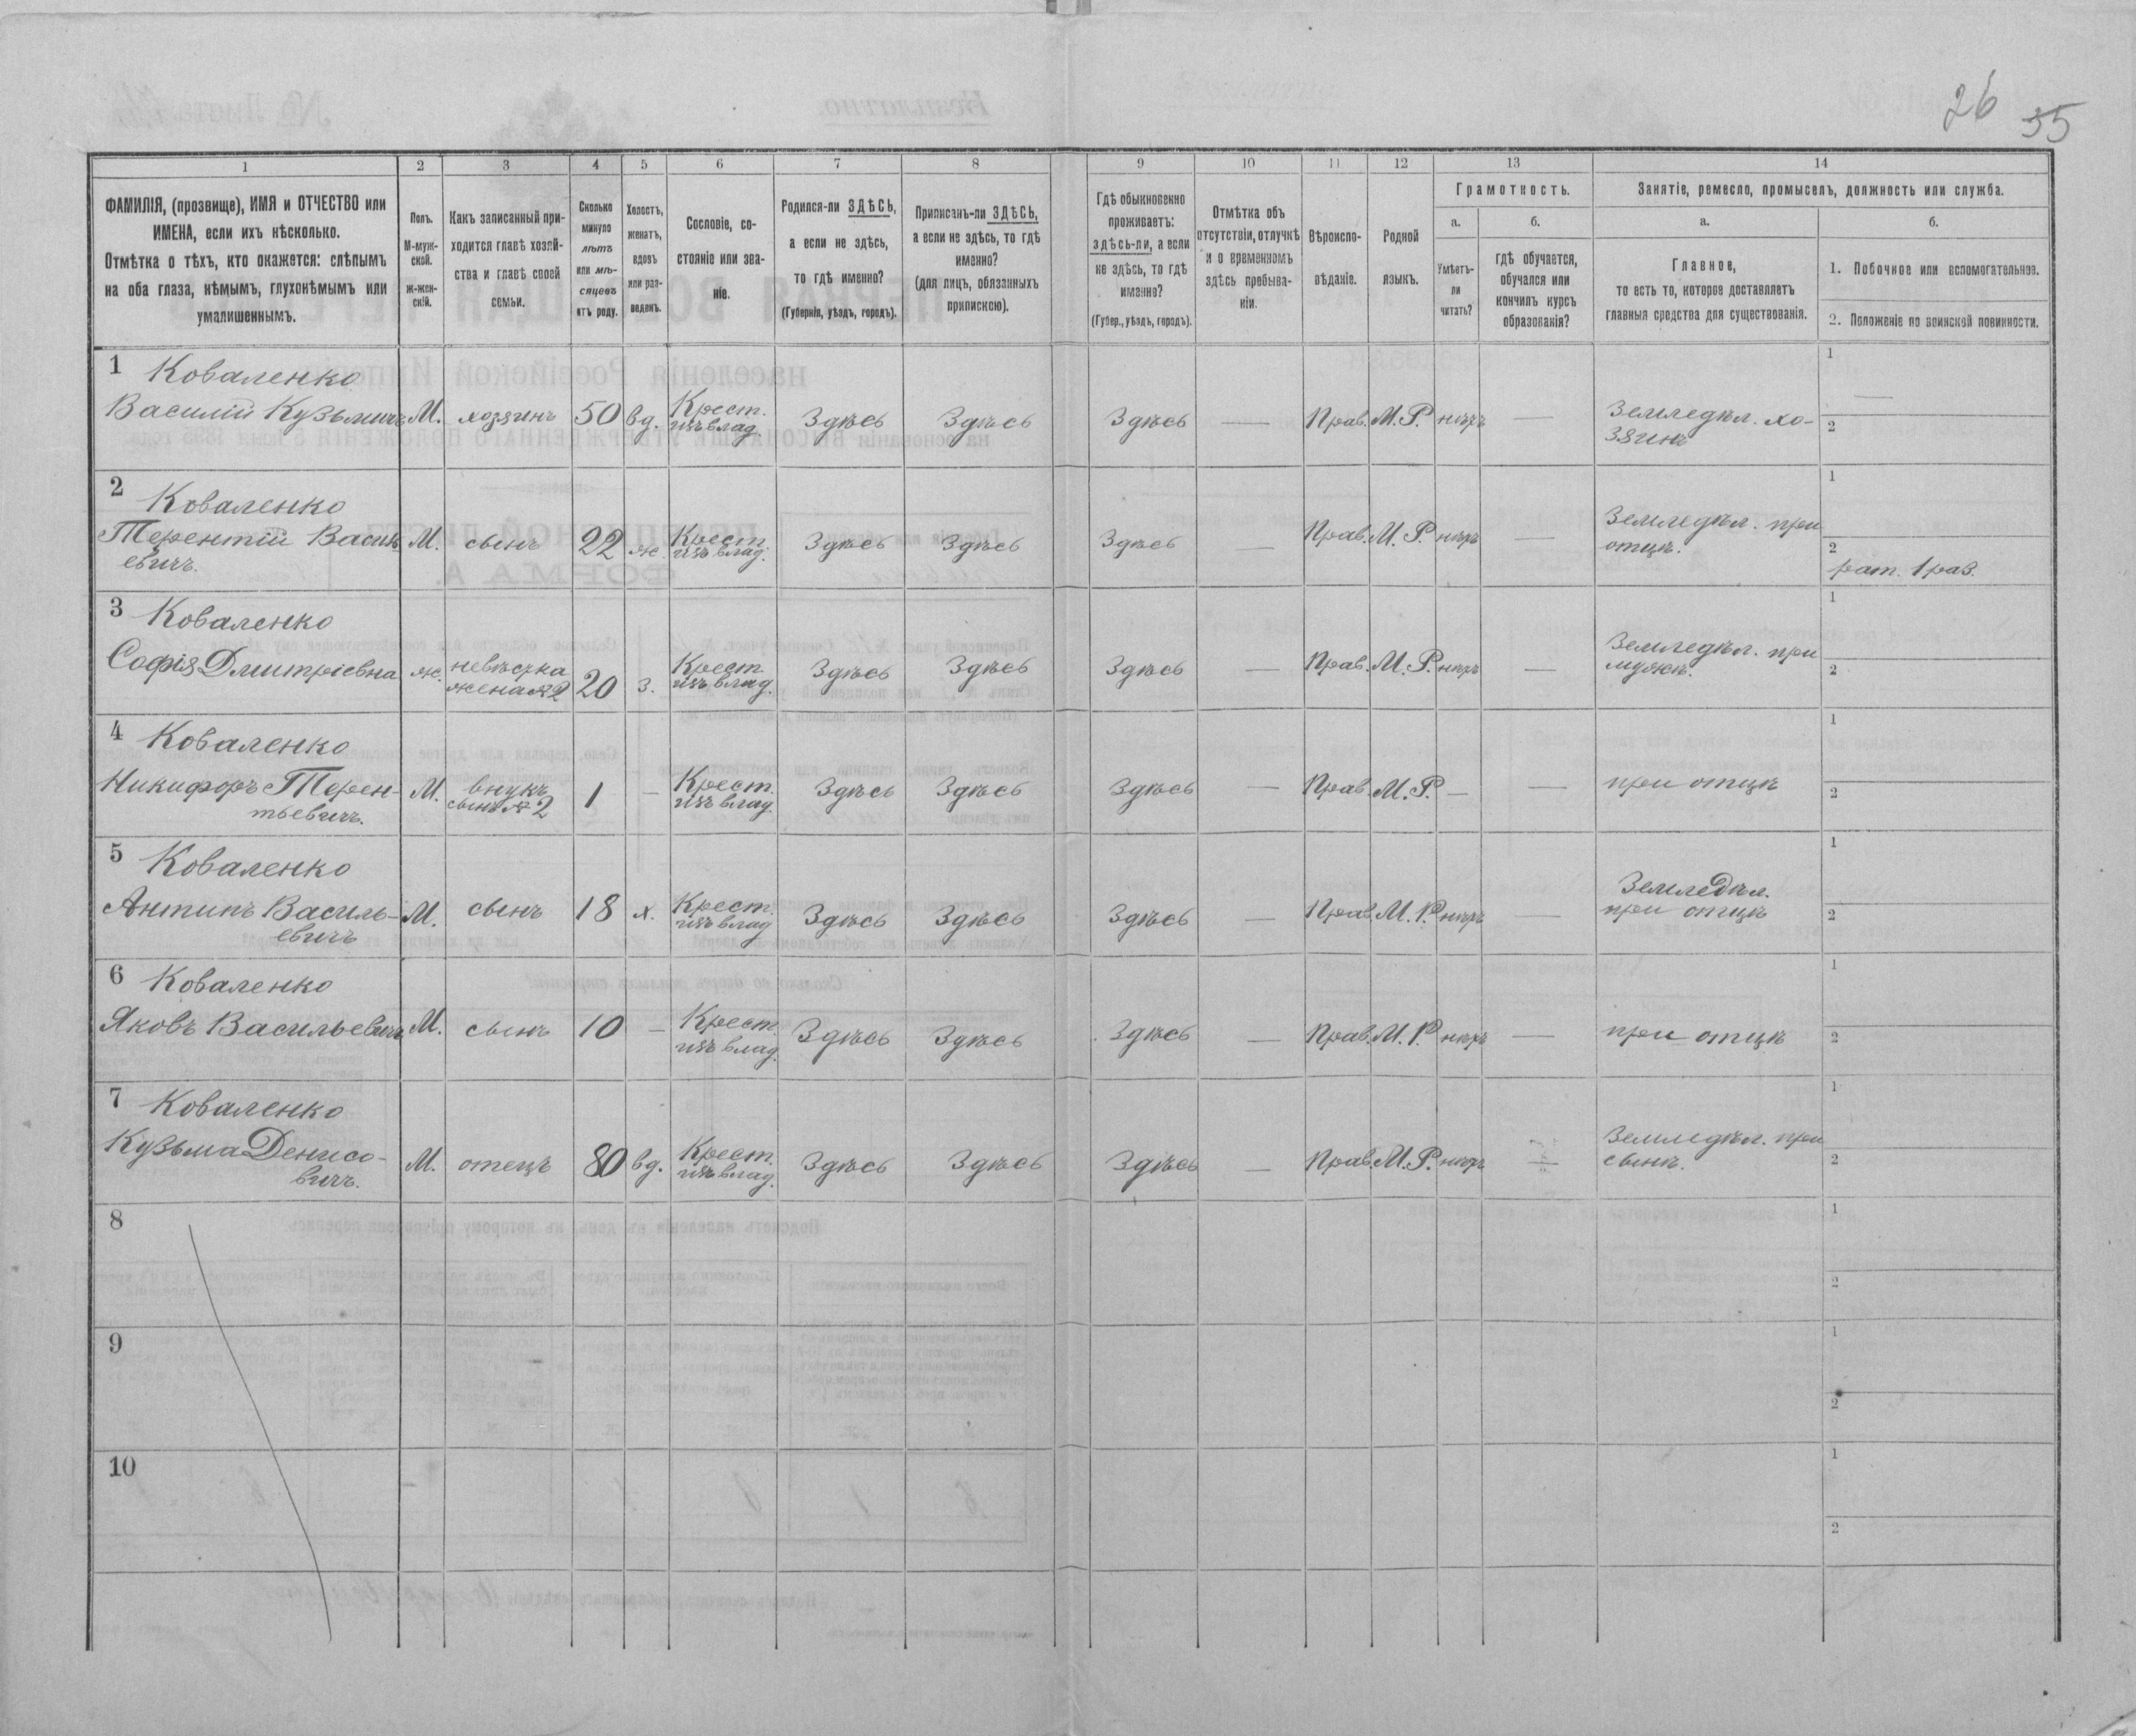 26 35
1 2 3 4 5 6 7 8 9 10 11 12 13 14
ФАМИЛІЯ, (прозвище), ИМЯ и ОТЧЕСТВО или
ИМЕНА, если ихъ нѣсколько.
Отмѣтка о тѣхъ, кто окажется: слѣпымъ
на оба глаза, нѣмымъ, глухонѣмымъ или
умалишеннымъ.
Полъ.
М-муж-
ской.
Ж-жен-
скій.
Какъ записанный при-
ходится главѣ хозяй-
ства и главѣ своей
семьи.
Сколько
минуло
лѣтъ
или мѣ-
сяцевъ
отъ роду.
Холостъ,
женатъ,
вдовъ
или раз-
веденъ.
Сословіе, со-
стояніе или зва-
ніе.
Родился-ли ЗДѢСЬ,
а если не здѣсь,
то гдѣ именно?
(Губернія, уѣздъ, городъ).
Приписанъ-ли ЗДѢСЬ,
а если не здѣсь, то гдѣ
именно?
(для лицъ, обязанныхъ
припискою).
Гдѣ обыкновенно
проживаетъ:
здѣсь-ли, а если
не здѣсь, то гдѣ
именно?
(Губер., уѣздъ, городъ).
Отмѣтка объ
отсутствіи, отлучкѣ
и о временномъ
здѣсь пребыва-
ніи.
Вѣроиспо-
вѣданіе.
Родной
языкъ.
Грамотность.
а. б.
Умѣетъ-
ли
читать?
гдѣ обучается,
обучался или
кончилъ курсъ
образованія?
Занятіе, ремесло, промыселъ, должность или служба.
а. б.
Главное,
то есть то, которое доставляетъ
главныя средства для существованія.
1. Побочное или вспомогательное.
2. Положеніе по воинской повинности.
1 Коваленко 1
Василій Кузьмичъ М. хозяинъ 50 вд. Крест. изъ влад. Здѣсь Здѣсь Здѣсь — Прав. М.Р. нѣтъ — Земледѣл. хо-
зяинъ 2
2 Коваленко 1
Терентій Василь М. сынъ 22 ж. Крест. изъ влад. Здѣсь Здѣсь Здѣсь — Прав. М.Р. нѣтъ — Земледѣл. при
евичъ. отцѣ. 2
рат. 1 раз.
3 Коваленко 1
Софія Дмитріевна ж. невѣстка 20 з. Крест. изъ влад. Здѣсь Здѣсь Здѣсь — Прав. М.Р. нѣтъ — Земледѣл. при
жена № 2 мужѣ. 2
4 Коваленко 1
Никифоръ Терен- М. внукъ 1 — Крест. изъ влад. Здѣсь Здѣсь Здѣсь — Прав. М.Р. — — при отцѣ
тьевичъ. сынъ № 2 2
5 Коваленко 1
Антипъ Василь- М. сынъ 18 х. Крест. изъ влад Здѣсь Здѣсь Здѣсь — Прав М.Р. нѣтъ — Земледѣл.
евичъ при отцѣ 2
6 Коваленко 1
Яковъ Васильевичъ М. сынъ 10 — Крест. изъ влад. Здѣсь Здѣсь Здѣсь — Прав. М.Р. нѣтъ — при отцѣ 2
7 Коваленко 1
Кузьма Денисо- М. отецъ 80 вд. Крест. изъ влад. Здѣсь Здѣсь Здѣсь — Прав. М.Р. нѣтъ — Земледѣл. при
вичъ. сынѣ. 2
8 1
2
9 1
2
10 1
2